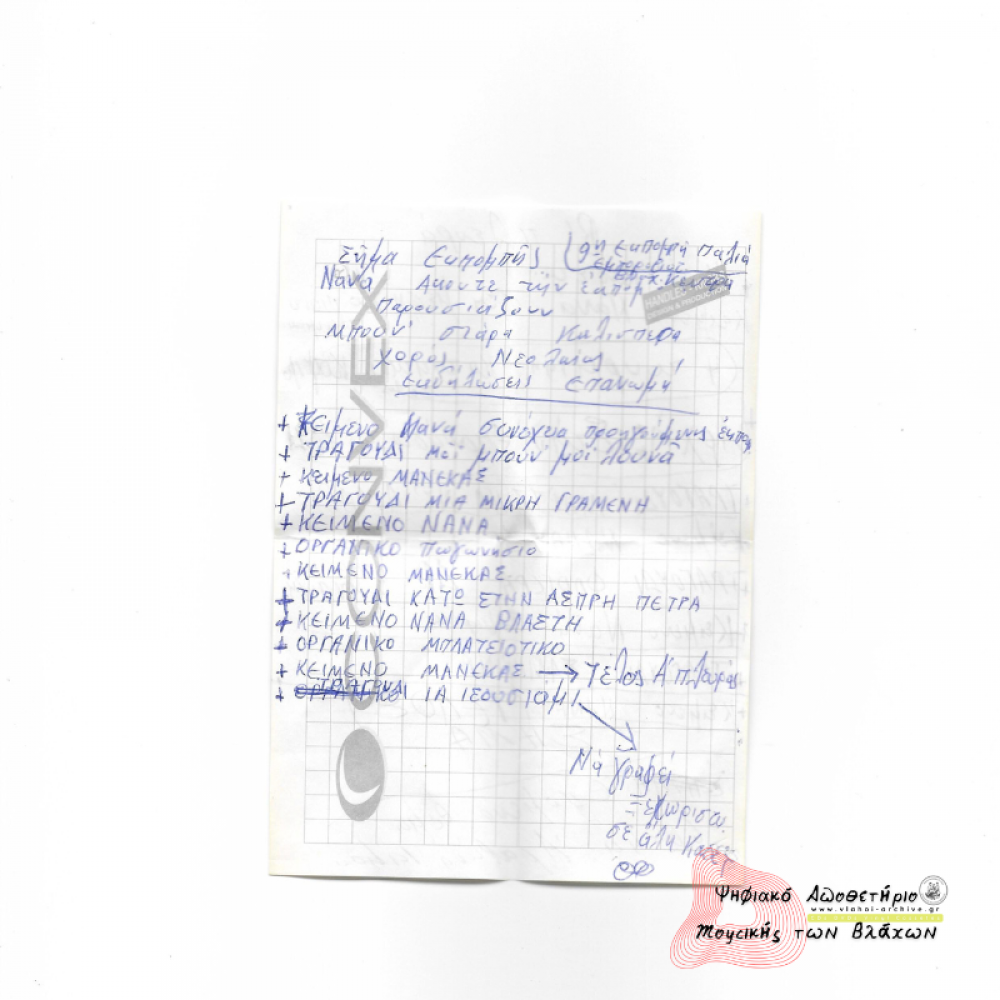 Σήμα Εκπομπής (9η εκπομπή παλιά
Νανα Ακουτε την εκπομ
Παρουσιάζουν
Μπουν' σιάρα Καλισπερα
χορός Νεολαιας
εκδηλώσεις επανωμή
+ Κείμενο Νανά συνέχεια προηγούμενης εκπομ
+ ΤΡΑΓΟΥΔΙ μοί μπούν μοί λουνά
+ Κείμενο ΜΑΝΕΚΑΣ
+ ΤΡΑΓΟΥΔΙ ΜΙΑ ΜΙΚΡΗ ΓΡΑΜΕΝΗ
+ ΚΕΙΜΕΝΟ ΝΑΝΑ
+ ΟΡΓΑΝΙΚΟ Πωγωνησιο
+ ΚΕΙΜΕΝΟ ΜΑΝΕΚΑΣ
+ ΤΡΑΓΟΥΔΙ ΚΑΤΩ ΣΤΗΝ ΑΣΠΡΗ ΠΕΤΡΑ
+ ΚΕΙΜΕΝΟ ΝΑΝΑ ΒΛΑΣΤΗ
+ ΟΡΓΑΝΙΚΟ ΜΠΛΑΤΕΙΟΤΙΚΟ
+ ΚΕΙΜΕΝΟ ΜΑΝΕΚΑΣ → Τέλος Α' πλευράς
+ ΤΡΑΓΟΥΔΙ ΙΑ ΙΣΟΥΣΙΑΜΙ
Νά γραφεί
ξεχωριστα
σε άλη Κασετ
CONVEX
Ψηφιακό Αποθετήριο
www.vlahoi-archive.gr
Μουσικής των Βλάχων